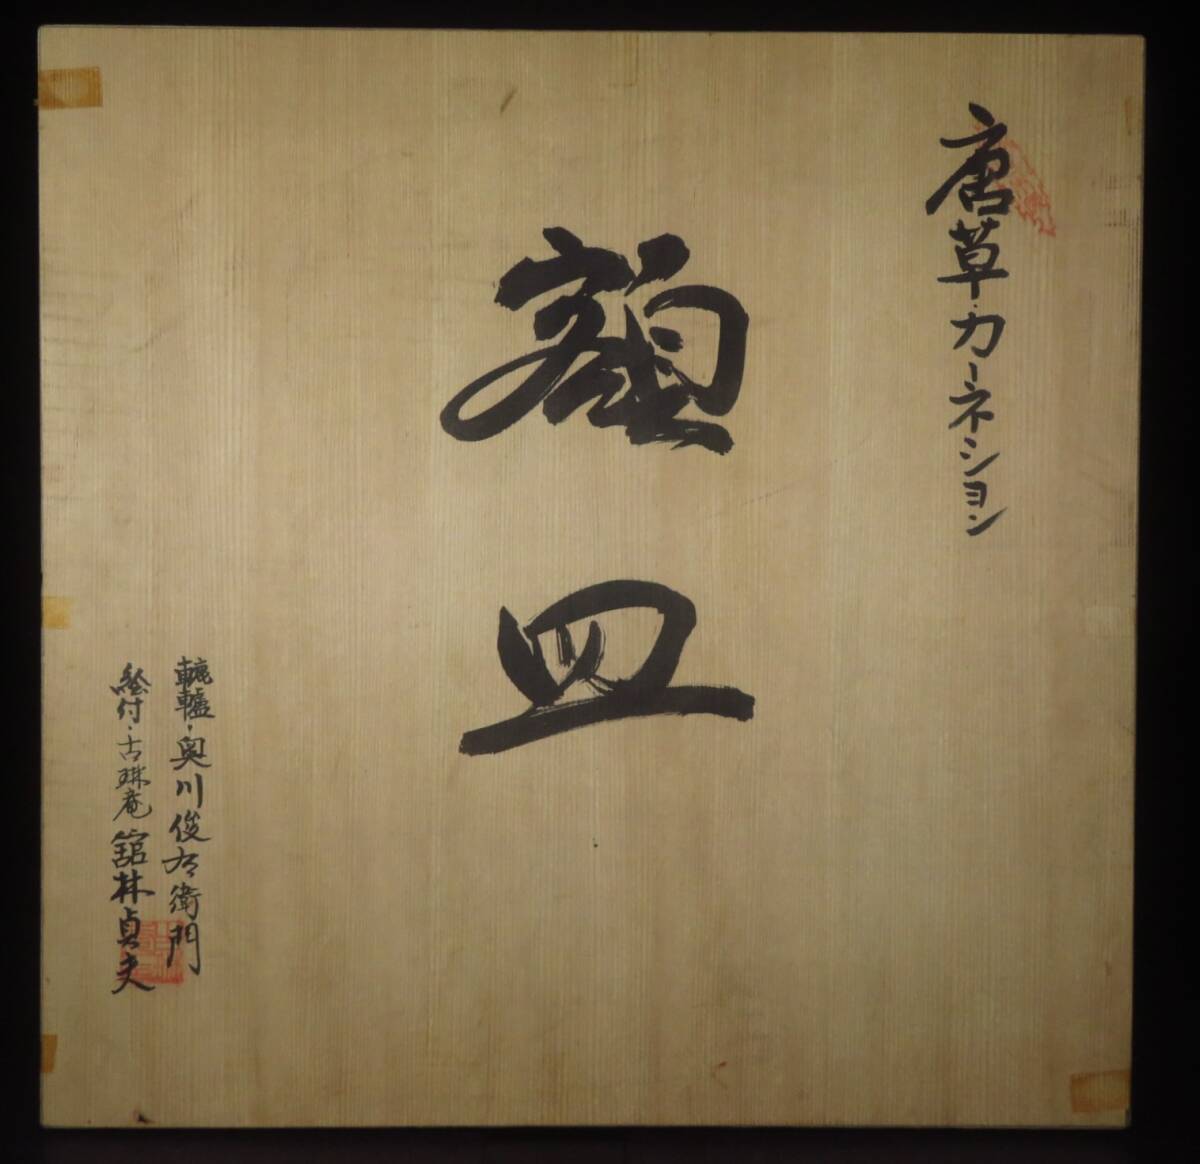 唐草・カーネション
額皿
轆轤・奥川俊右衛門
絵付・古珠庵 舘林貞夫